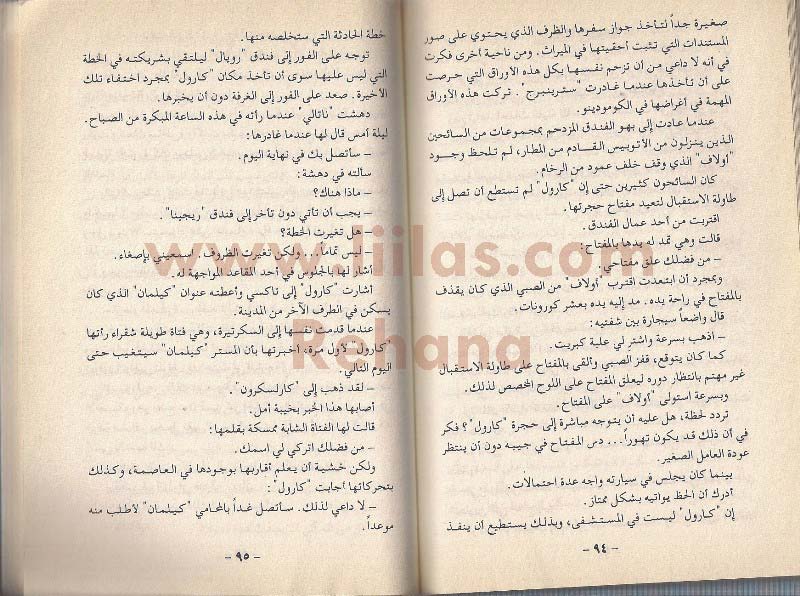 صغيرة جداً لتأخذ جواز سفرها والظرف الذي يحتوي على صور
المستندات التي تثبت أحقيتها في الميراث. ومن ناحية أخرى فكرت
في أنه لا داعي من أن تزحم نفسها بكل هذه الأوراق التي حرصت
على أن تأخذها عندما غادرت "سترينبرج". تركت هذه الأوراق
المهمة في أغراضها في الكومودينو.
عندما عادت إلى بهو الفندق المزدحم بمجموعات من السائحين
الذين ينزلون من الأتوبيس القادم من المطار، لم تلحظ وجود
"أولاف" الذي وقف خلف عمود من الرخام.
كان السائحون كثيرين حتى إن "كارول" لم تستطع أن تصل إلى
طاولة الاستقبال لتعيد مفتاح حجرتها.
اقتربت من أحد عمال الفندق.
قالت وهي تمد له يدها بالمفتاح:
– من فضلك علق مفتاحي.
وبمجرد أن ابتعدت اقترب "أولاف" من الصبي الذي كان يقذف
بالمفتاح في راحة يده. مد إليه يده بعشر كورونات.
قال واضعاً سيجارة بين شفتيه:
– اذهب بسرعة واشتر لي علبة كبريت.
كما كان يتوقع، قفز الصبي وألقى بالمفتاح على طاولة الاستقبال
غير مهتم بانتظار دوره ليعلق المفتاح على اللوح المخصص لذلك.
وبسرعة استولى "أولاف" على المفتاح.
تردد لحظة، هل عليه أن يتوجه مباشرة إلى حجرة "كارول"؟ فكر
في أن ذلك قد يكون تهوراً... دس المفتاح في جيبه دون أن ينتظر
عودة العامل الصغير.
بينما كان يجلس في سيارته واجه عدة احتمالات.
أدرك أن الحظ يواتيه بشكل ممتاز.
إن "كارول" ليست في المستشفى، وبذلك يستطيع أن ينفذ
– ٩٤ –
خطة الحادثة التي ستخلصه منها.
توجه على الفور إلى فندق "رويال" ليلتقي بشريكته في الخطة
التي ليس عليها سوى أن تأخذ مكان "كارول" بمجرد اختفاء تلك
الأخيرة. صعد على الفور إلى الغرفة دون أن يخبرها.
دهشت "ناتالي" عندما رأته في هذه الساعة المبكرة من الصباح.
ليلة أمس قال لها عندما غادرها:
– سأتصل بك في نهاية اليوم.
سألته في دهشة:
– ماذا هناك؟
– يجب أن تأتي دون تأخر إلى فندق "ريجينا".
– هل تغيرت الخطة؟
– ليس تماماً... ولكن تغيرت الظروف. اسمعيني بإصغاء.
أشار لها بالجلوس في أحد المقاعد المواجهة له.
أشارت "كارول" إلى تاكسي وأعطته عنوان "كيلمان" الذي كان
يسكن في الطرف الآخر من المدينة.
عندما قدمت نفسها إلى السكرتيرة، وهي فتاة طويلة شقراء رأتها
"كارول" لأول مرة، أخبرتها بأن المستر "كيلمان" سيتغيب حتى
اليوم التالي.
– لقد ذهب إلى "كارلسكرون".
أصابها هذا الخبر بخيبة أمل.
قالت لها الفتاة الشابة ممسكة بقلمها:
– من فضلك اتركي لي اسمك.
ولكن خشية أن يعلم أقاربها بوجودها في العاصمة، وكذلك
بتحركاتها أجابت "كارول":
– لا داعي لذلك. سأتصل غداً بالمحامي "كيلمان" لأطلب منه
موعداً.
– ٩٥ –
www.liilas.com
Rehana